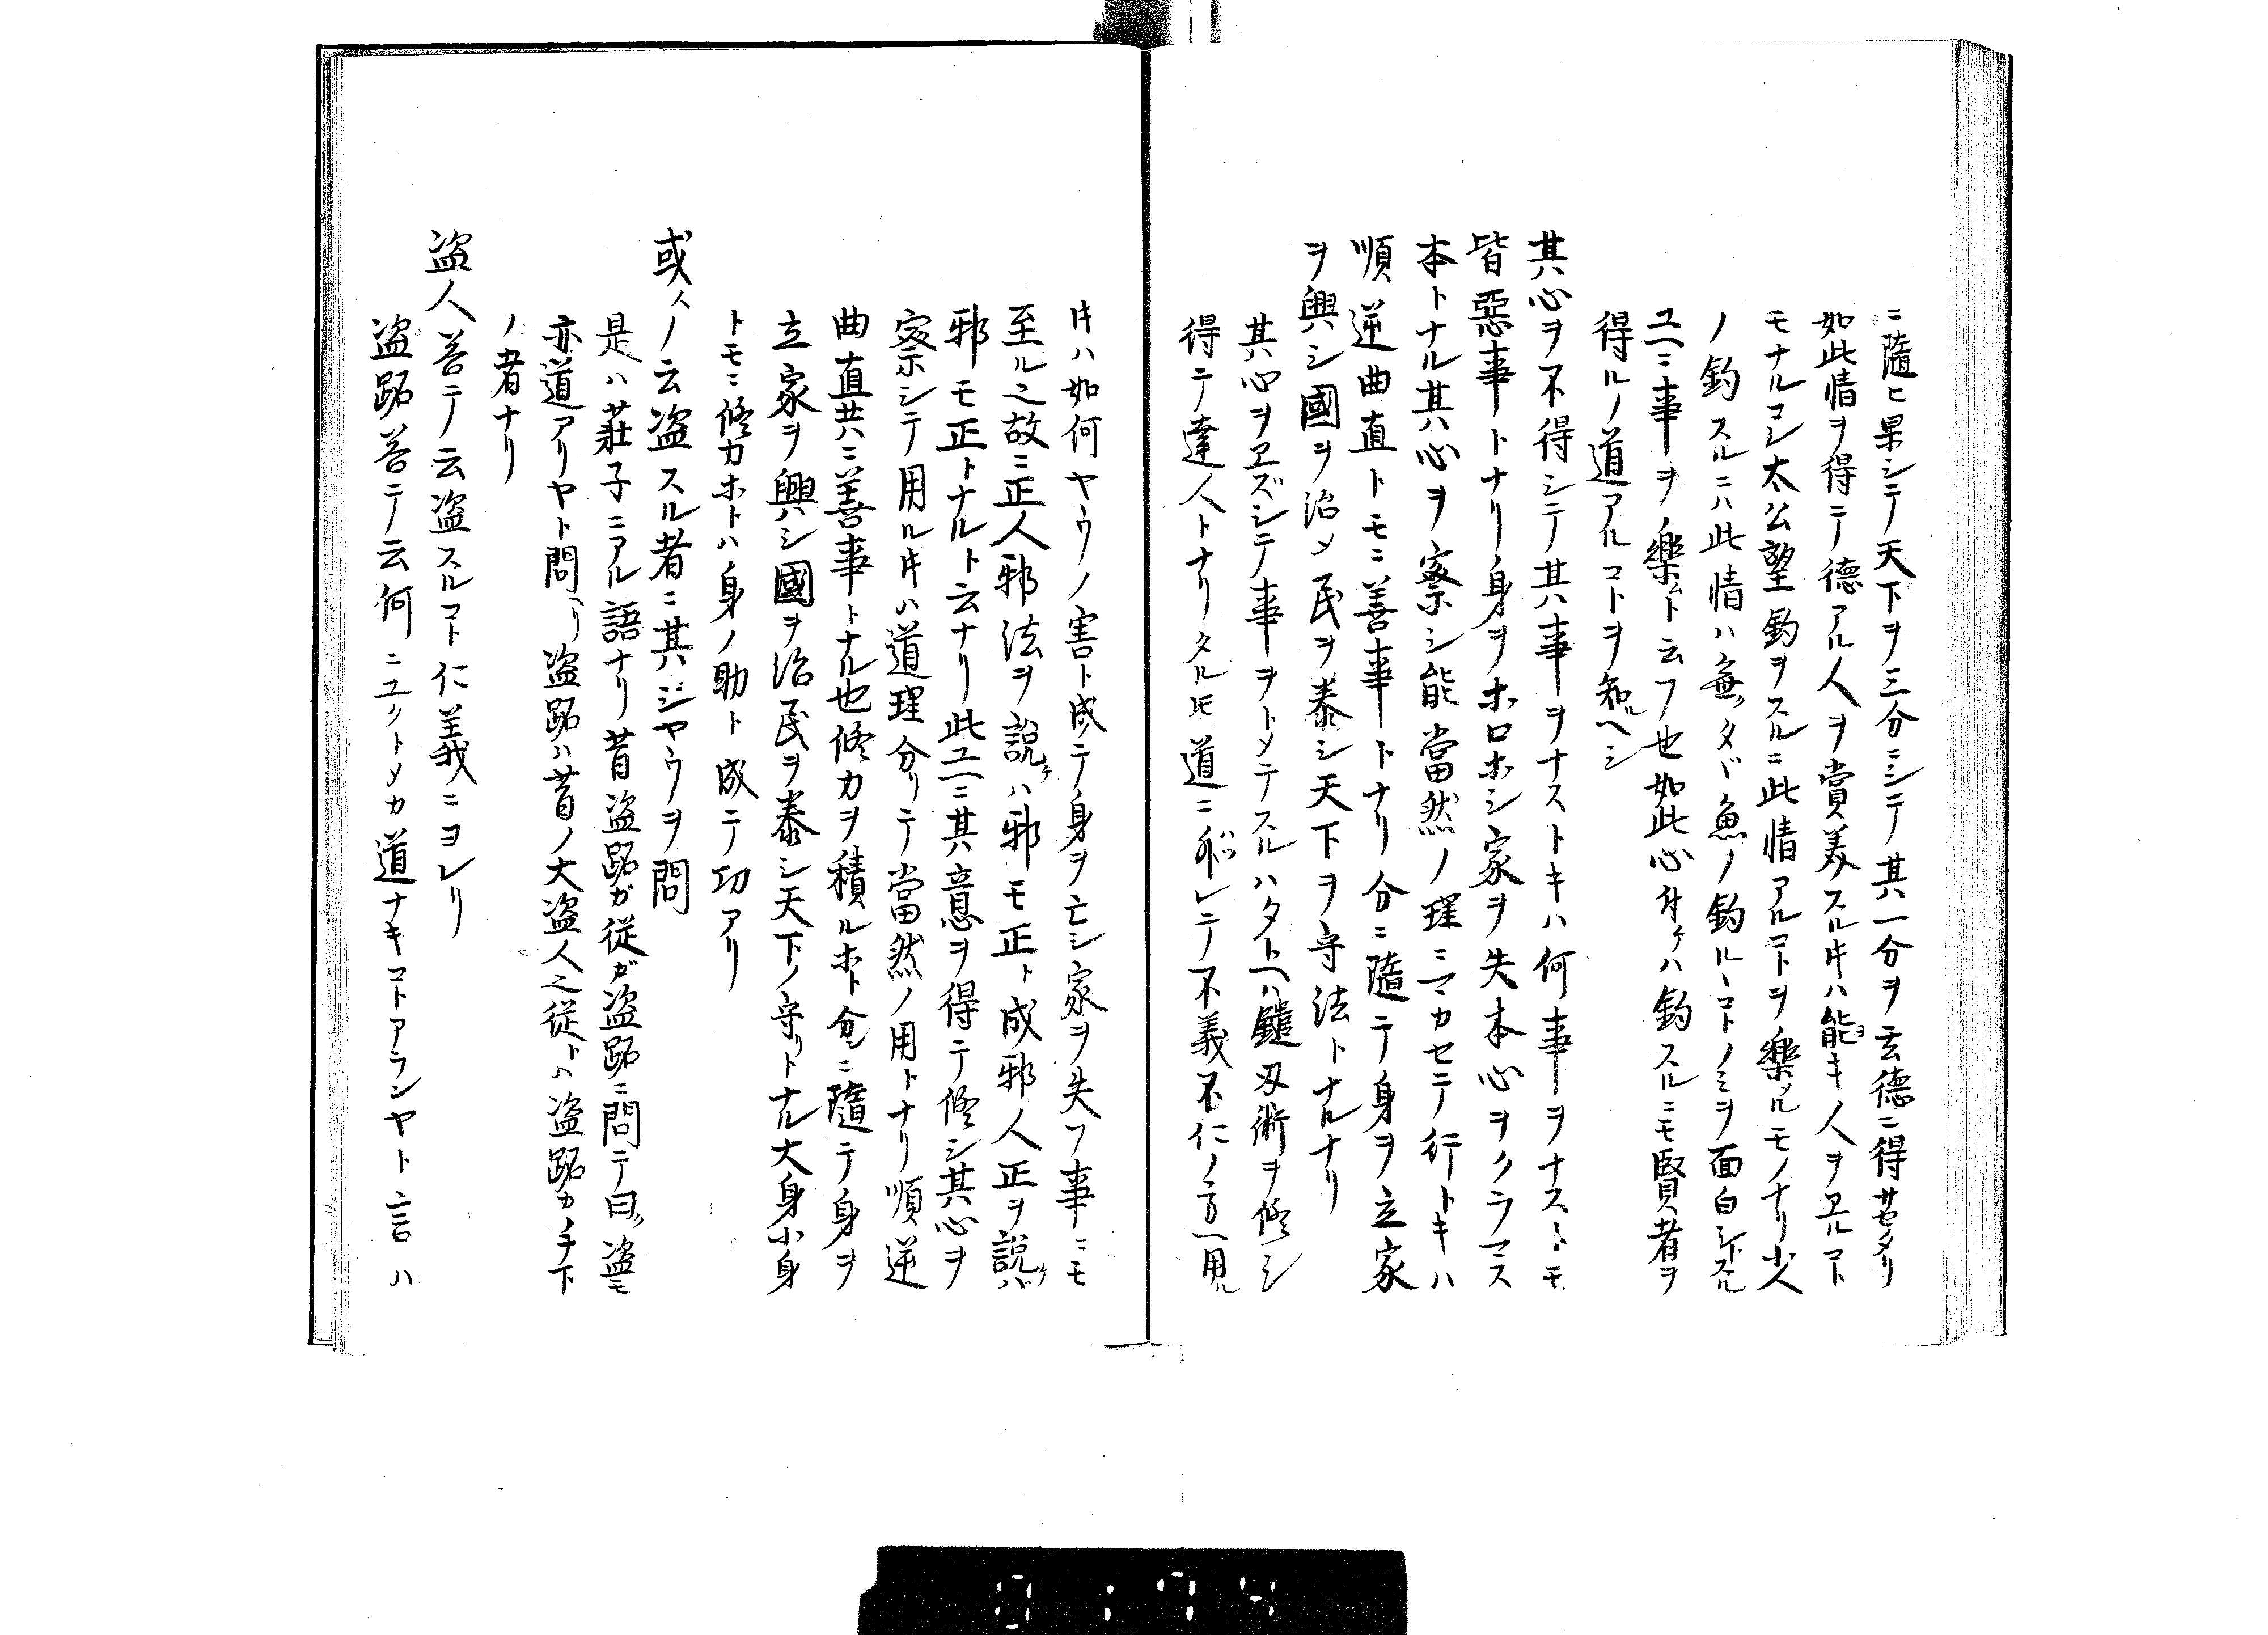 ニ隨ヒ果シテ天下ヲ三分ニシテ其一分ヲ玄德ニ得サセタリ
如此情ヲ得テ德アル人ヲ賞美スル𪜈ハ能キ人ヲヱルコト
モナルヿシ太公望釣ヲスルニ此情アルコトヲ樂メルモノナリ少人
ノ釣スルニハ此情ハ無クタヾ魚ノ釣ルヽコトノミヲ面白シトスル
ユヘニ事ヲ樂ムト云フ也如此心付ケハ釣スルニモ賢者ヲ
得ルノ道アルコトヲ知ルヘシ
其心ヲ不得シテ其事ヲナストキハ何事ヲナスニモ
皆惡事トナリ身ヲホロホシ家ヲ失本心ヲクラマス
本トナル其心ヲ察シ能當然ノ理ニマカセテ行トキハ
順逆曲直トモニ善事トナリ分ニ隨テ身ヲ立家
ヲ興シ國ヲ治メ民ヲ泰シ天下ヲ守法トナルナリ
其心ヲヱズシテ事ヲトメテスルハタトヘハ鑓刄術ヲ修シ
得テ達人トナリタル𪜈道ニ外レテ不義不仁ノ方ヘ用ル
𪜈ハ如何ヤウノ害ト成テ身ヲ亡シ家ヲ失フ事ニモ
至ル之故ニ正人邪法ヲ說ケハ邪モ正ト成邪人正ヲ說ケハ
邪モ正トナルト云ナリ此ユヘニ其意ヲ得テ修シ其心ヲ
察シテ用ル𪜈ハ道理分リテ當然ノ用トナリ順逆
曲直共ニ善事トナル也修カヲ積ルホト分ニ隨テ身ヲ
立家ヲ興シ國ヲ治民ヲ泰シ天下ノ守リトナル大身小身
トモニ修カホトハ身ノ助ト成テ功アリ
或人ノ云盗スル者ニ其ハジヤウヲ問
是ハ莊子ニアル語ナリ昔盗跖ガ從ガ盗跖ニ問テ曰ク盗モ
亦道アリヤト問ヘリ盗跖ハ昔ノ大盗人之從トハ盗跖カ手下
ノ者ナリ
盗人答テ云盗スルコト仁義ニヨレリ
盗跖答テ云何ニユクトメカ道ナキコトアランヤト言ハ